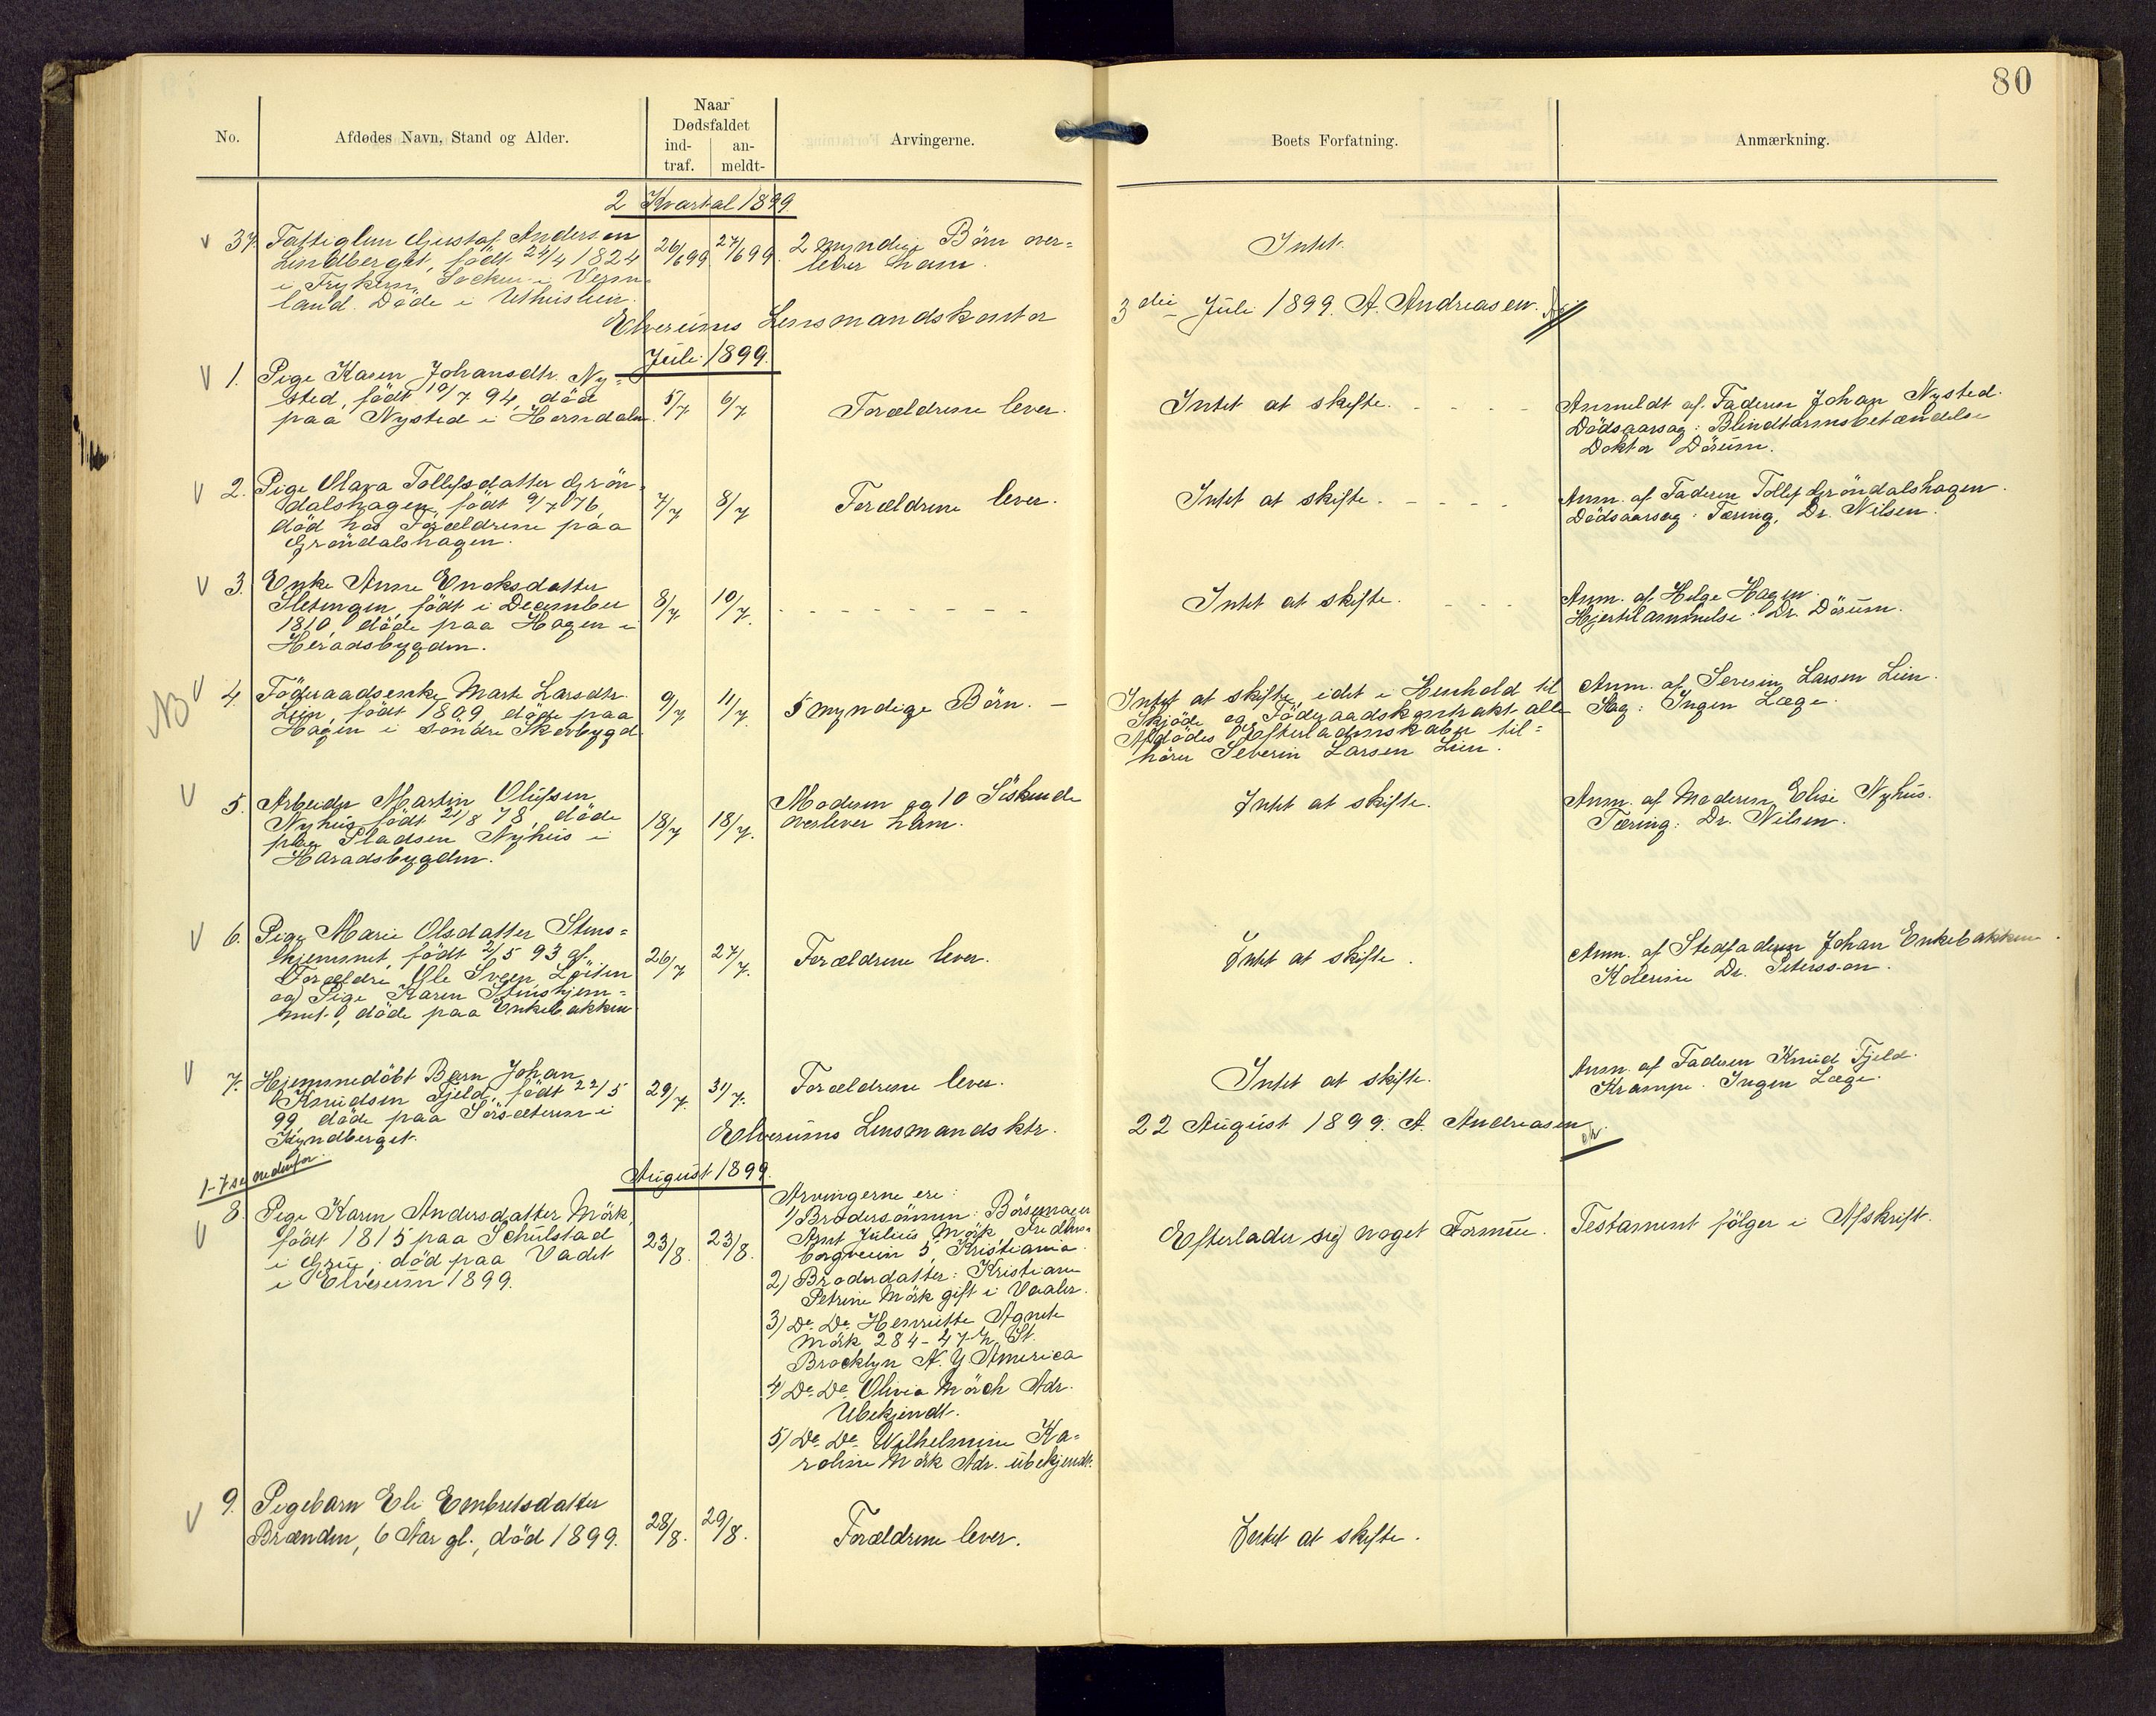 80
No.
Afdødes Navn, Stand og Alder.
Naar
Dødsfaldet
ind-
traf.
an-
meldt-
Arvingerne.
Boets Forfatning.
Anmærkning.
2 Kvartal 1899
37. Fattiglem Gustaf Andersen
Lindberget, født 24/4 1824
i Socken i Verm-
land. Døde i
26/6 99. 27/6 99.
2 myndige Børn over-
lever ham.
Intet.
Elverums Lensmandskontor 3die Juli 1899. A. Andreasen.
Juli 1899.
1. Pige Karen Johansdtr. Ny-
sted, født 10/7 94, døde
paa Nysted i Herndalen.
5/7 6/7
Forældrene lever.
Intet at skifte.
Anmeldt af Faderen Johan Nysted.
Dødsaarsag: Blindtarmsbetændelse
Doktor Dørum.
2. Pige Mara Tollefsdatter Grøn-
dalshagen, født 9/7 76,
død hos Forældrene paa
Grøndalshagen.
7/7 8/7
Forældrene lever.
Intet at skifte.
Anm. af Faderen Tollef Grøndalshagen.
Dødsaarsag: Tæring, Dr. Nilsen.
3. Enke Anne Engksdatter
født i December
1810, døde paa Hagen i
Heradsbygden.
8/7 10/7.
Intet at skifte.
Anm. af Helge Hagen.
Hjertelammelse: Dr. Dørum.
NB
4. Føderaadsenke Marte Larsdtr.
Lien, født 1809, døde paa
Hagen i søndre Skovbygd
9/7 11/7.
5 myndige Børn. –
Intet at skifte, idet i Henhold til
Skjøde og Føderaadskontrakt alle
Afdødes Efterladenskaber til-
hører Severin Larsen Lien.
Anm. af Severin Larsen Lien.
Slag: Ingen Læge.
5. Arbeider Martin Olufsen
Nyhus, født 21/8 78, døde
paa Pladsen Nyhus i
Haradsbygden.
18/7 18/7.
Moderen og 10 Søskende
overlever ham.
Intet at skifte.
Anm. af Moderen Elise Nyhus.
Tæring: Dr. Nilsen.
6. Pige Marie Olsdatter Stens-
hjemmet, født 2/5 93 af
Forældre Ole Sveen, Løiten
og Pige Karen Stenshjem-
met, døde paa Enkebakken
26/7 27/7.
Forældrene lever.
Intet at skifte.
Anm. af Stedfaderen Johan Enkebakken.
Kolerine Dr. Petersson.
7. Hjemmedøbt Barn Johan
Knudsen Fjeld, født 22/5
99, døde paa Sørsæteren i
Kyndberget.
29/7. 31/7.
Forældrene lever.
Intet at skifte.
Anm. af Faderen Knud Fjeld.
Krampe. Ingen Læge.
Elverums Lensmandsktr. 22 August 1899. A. Andreasen
1-7 se nedenfor.
August 1899.
8. Pige Karen Andersdatter Mørk,
født 1815 paa Schulstad
i Grue, død paa Vadet
i Elverum 1899.
23/8. 23/8.
Arvingerne ere:
1) Brodersønnen: Børsemager
Arnt Julius Mørk, Fredens-
borgveien 5, Kristiania.
2) Broderdatter: Kristiane
Petrine Mørk gift i Vaaler.
3) Do. Do. Henriette Agnete
Mørk 284 - 47th St.
Brooklyn N. Y. America
4) Do. Do. Olivia Mørch Adr.
Ubekjendt.
5) Do. Do. Wilhelmine Ka-
roline Mørk Adr. ubekjendt.
Efterlader sig noget Formue.
Testament følger i Afskrift.
9. Pigebarn Eli Embretsdatter
Brænden, 6 Aar gl., død 1899.
28/8. 29/8.
Forældrene lever.
Intet at skifte.